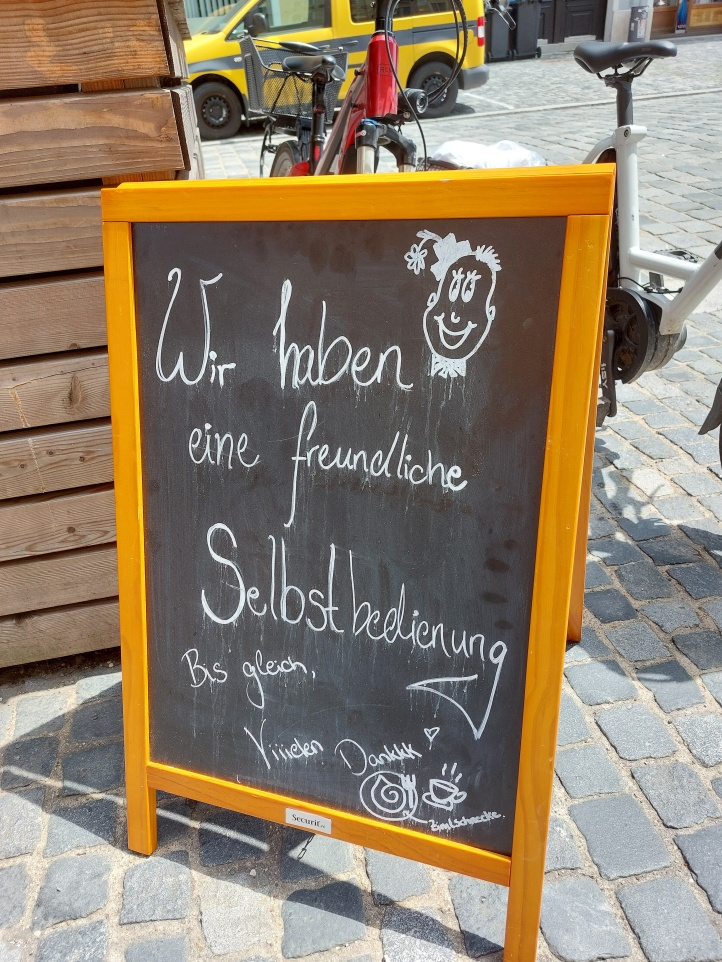 Wir haben
eine freundliche
Selbstbedienung
Bis gleich,
Viiielen Dankkk
Zimtschnecke.
Securit